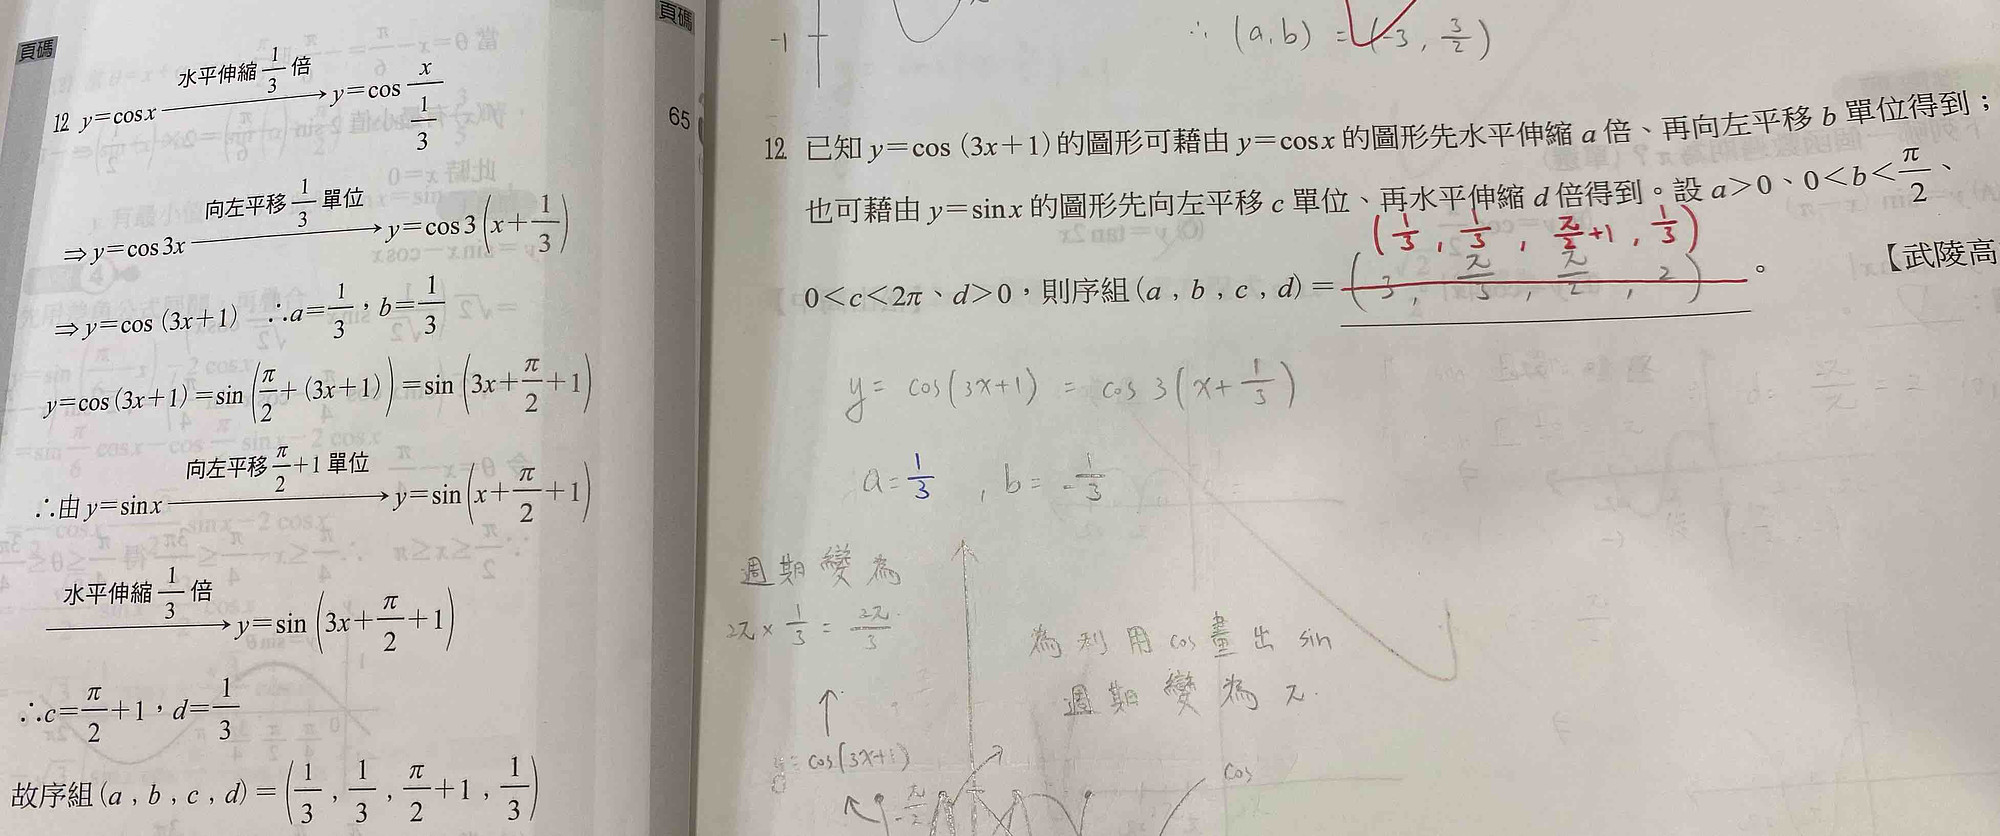 頁碼
12 y=cosx 水平伸縮 1/3 倍 → y=cos x/(1/3)
⇒y=cos3x 向左平移 1/3 單位 → y=cos3(x+1/3)
⇒y=cos(3x+1) ∴a=1/3,b=1/3
y=cos(3x+1)=sin(π/2+(3x+1))=sin(3x+π/2+1)
∴由y=sinx 向左平移 π/2+1 單位 → y=sin(x+π/2+1)
水平伸縮 1/3 倍 → y=sin(3x+π/2+1)
∴c=π/2+1,d=1/3
故序組(a,b,c,d)=(1/3,1/3,π/2+1,1/3)
頁碼
65
-1
∴ (a,b) = (-3, 3/2)
12 已知y=cos(3x+1)的圖形可藉由y=cosx的圖形先水平伸縮a倍、再向左平移b單位得到;
也可藉由y=sinx的圖形先向左平移c單位、再水平伸縮d倍得到。設a>0、0<b<π/2、
(1/3, 1/3, π/2+1, 1/3)
0<c<2π、d>0,則序組(a,b,c,d)=(3, π/3, π/2, 2)。
【武陵高
y= cos(3x+1) = cos 3(x+1/3)
a=1/3, b= -1/3
週期變為
2π×1/3=2π/3
為利用cos畫出sin
週期變為π.
y=cos(3x+1)
-π/2
cos